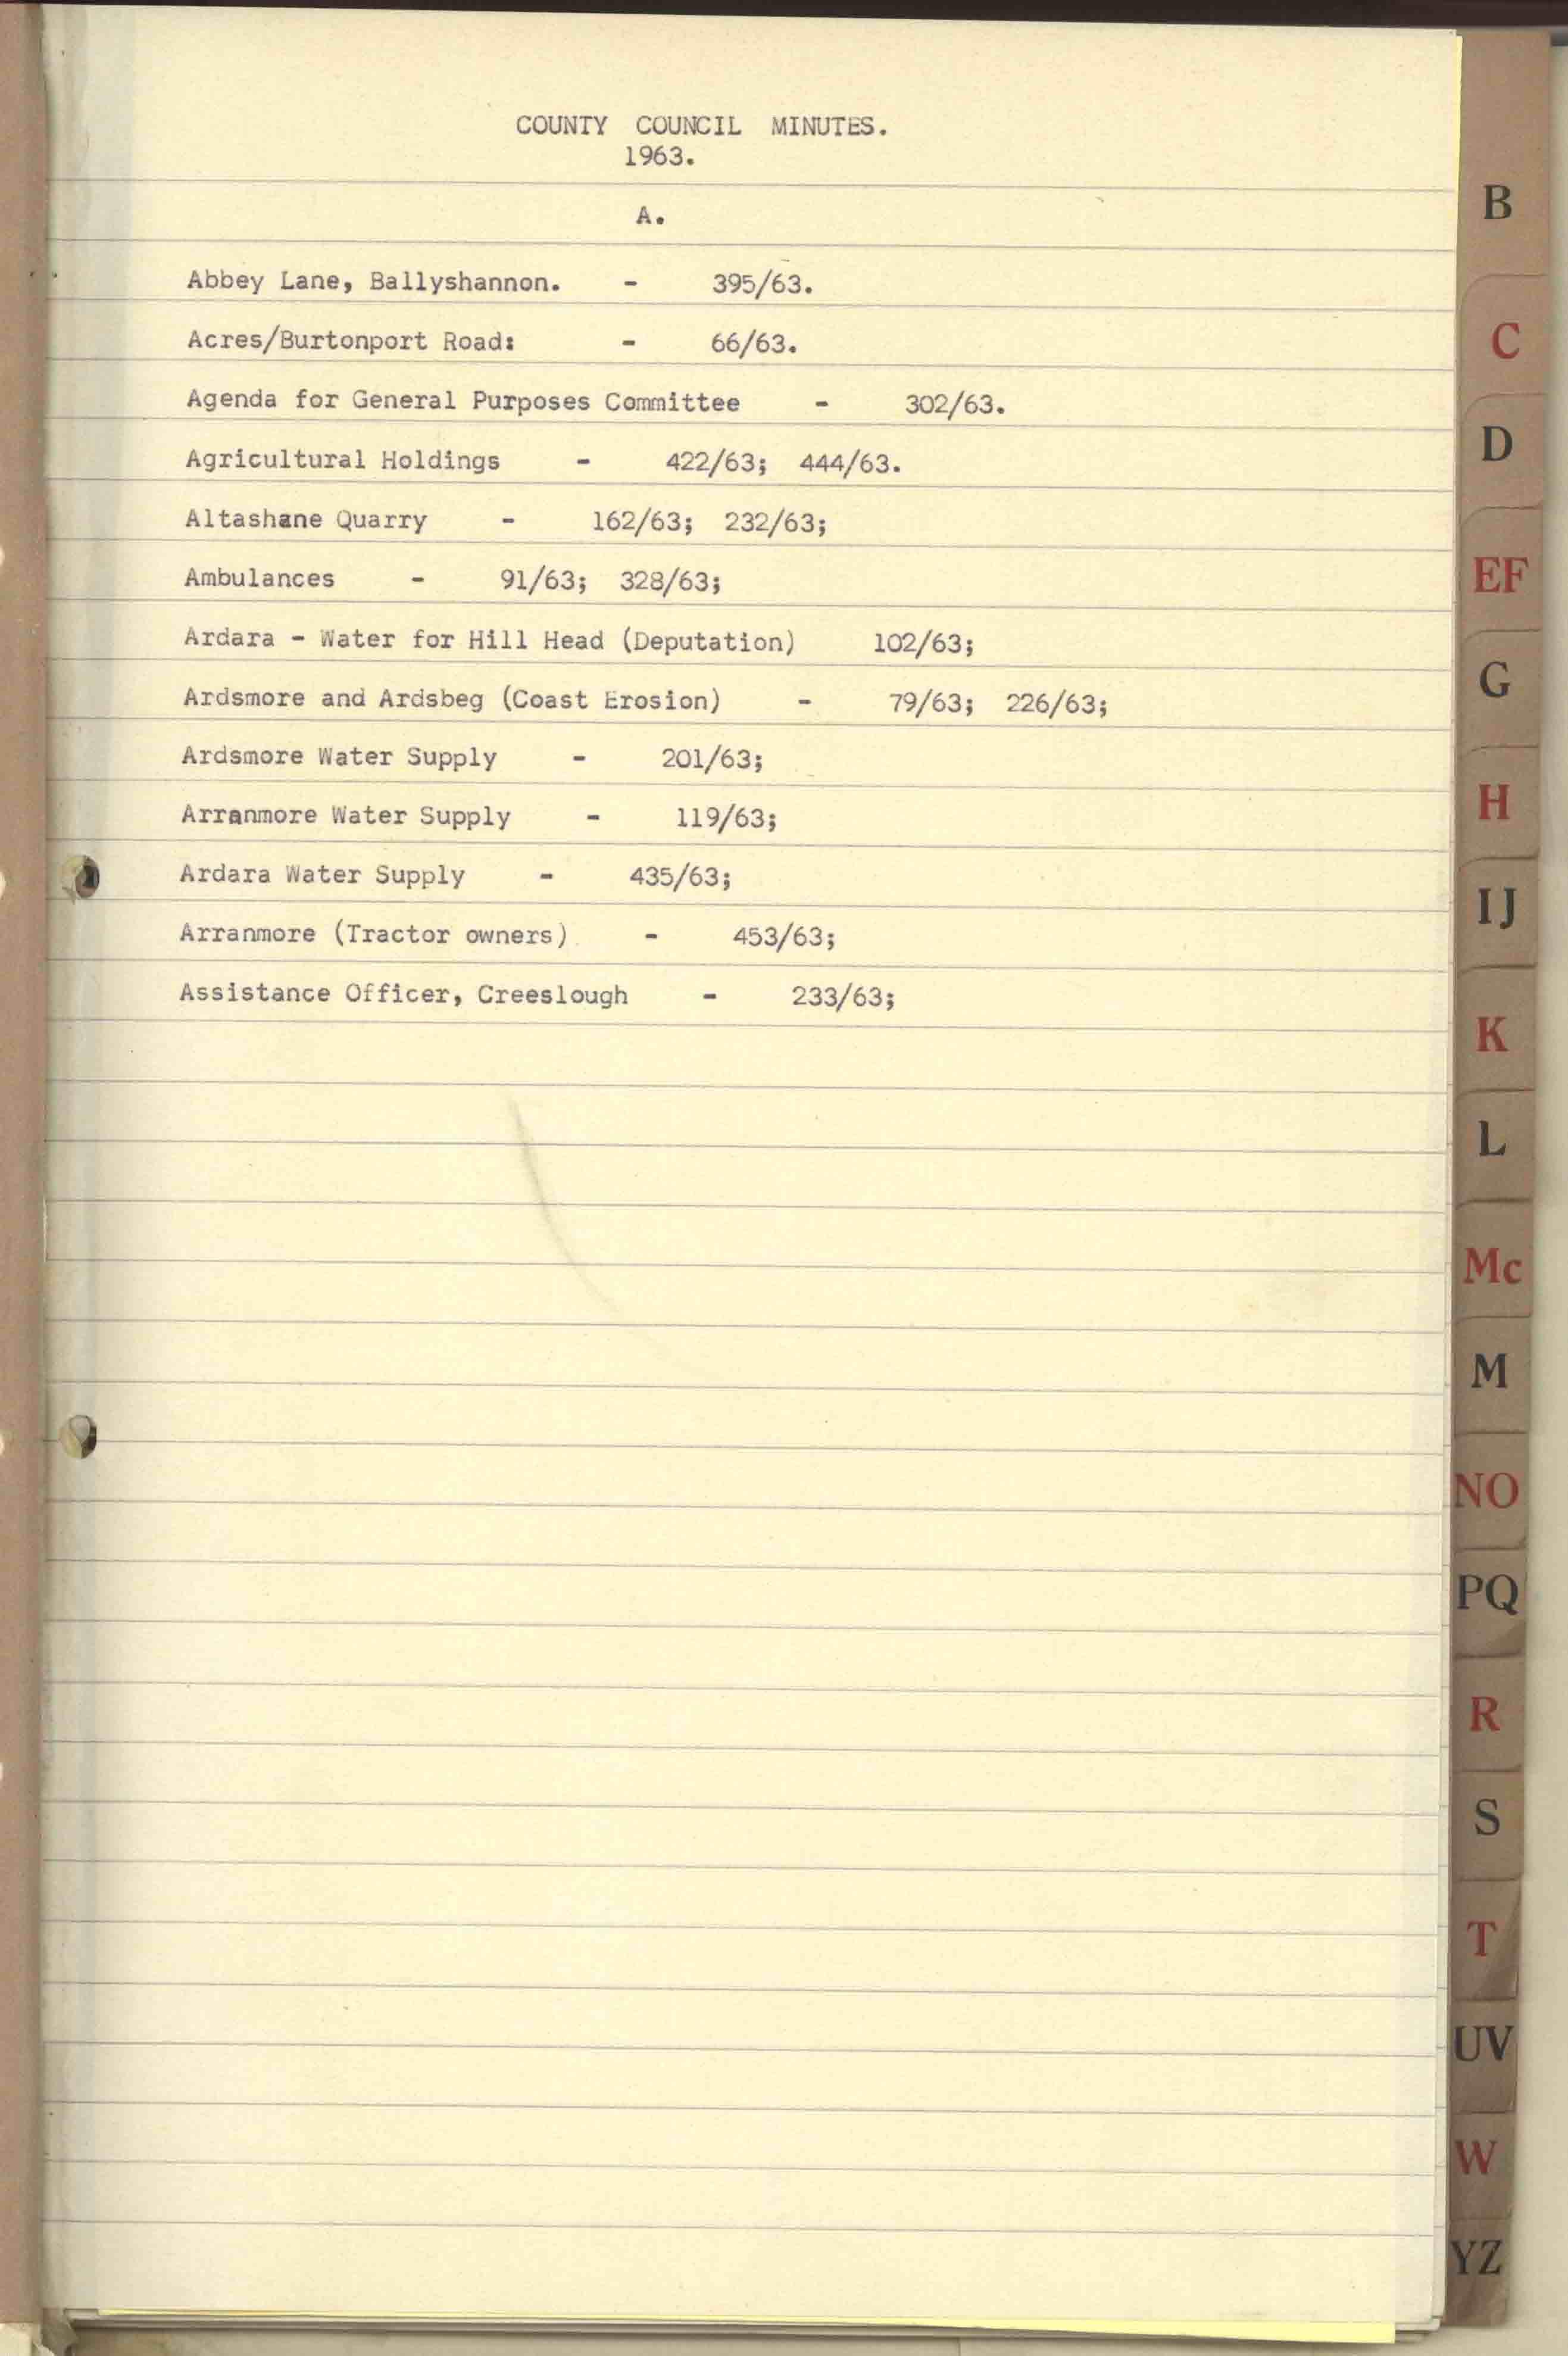 COUNTY COUNCIL MINUTES.
1963.
A.
Abbey Lane, Ballyshannon. - 395/63.
Acres/Burtonport Road: - 66/63.
Agenda for General Purposes Committee - 302/63.
Agricultural Holdings - 422/63; 444/63.
Altashane Quarry - 162/63; 232/63;
Ambulances - 91/63; 328/63;
Ardara - Water for Hill Head (Deputation) 102/63;
Ardsmore and Ardsbeg (Coast Erosion) - 79/63; 226/63;
Ardsmore Water Supply - 201/63;
Arranmore Water Supply - 119/63;
Ardara Water Supply - 435/63;
Arranmore (Tractor owners) - 453/63;
Assistance Officer, Creeslough - 233/63;
B
C
D
EF
G
H
IJ
K
L
Mc
M
NO
PQ
R
S
T
UV
W
YZ